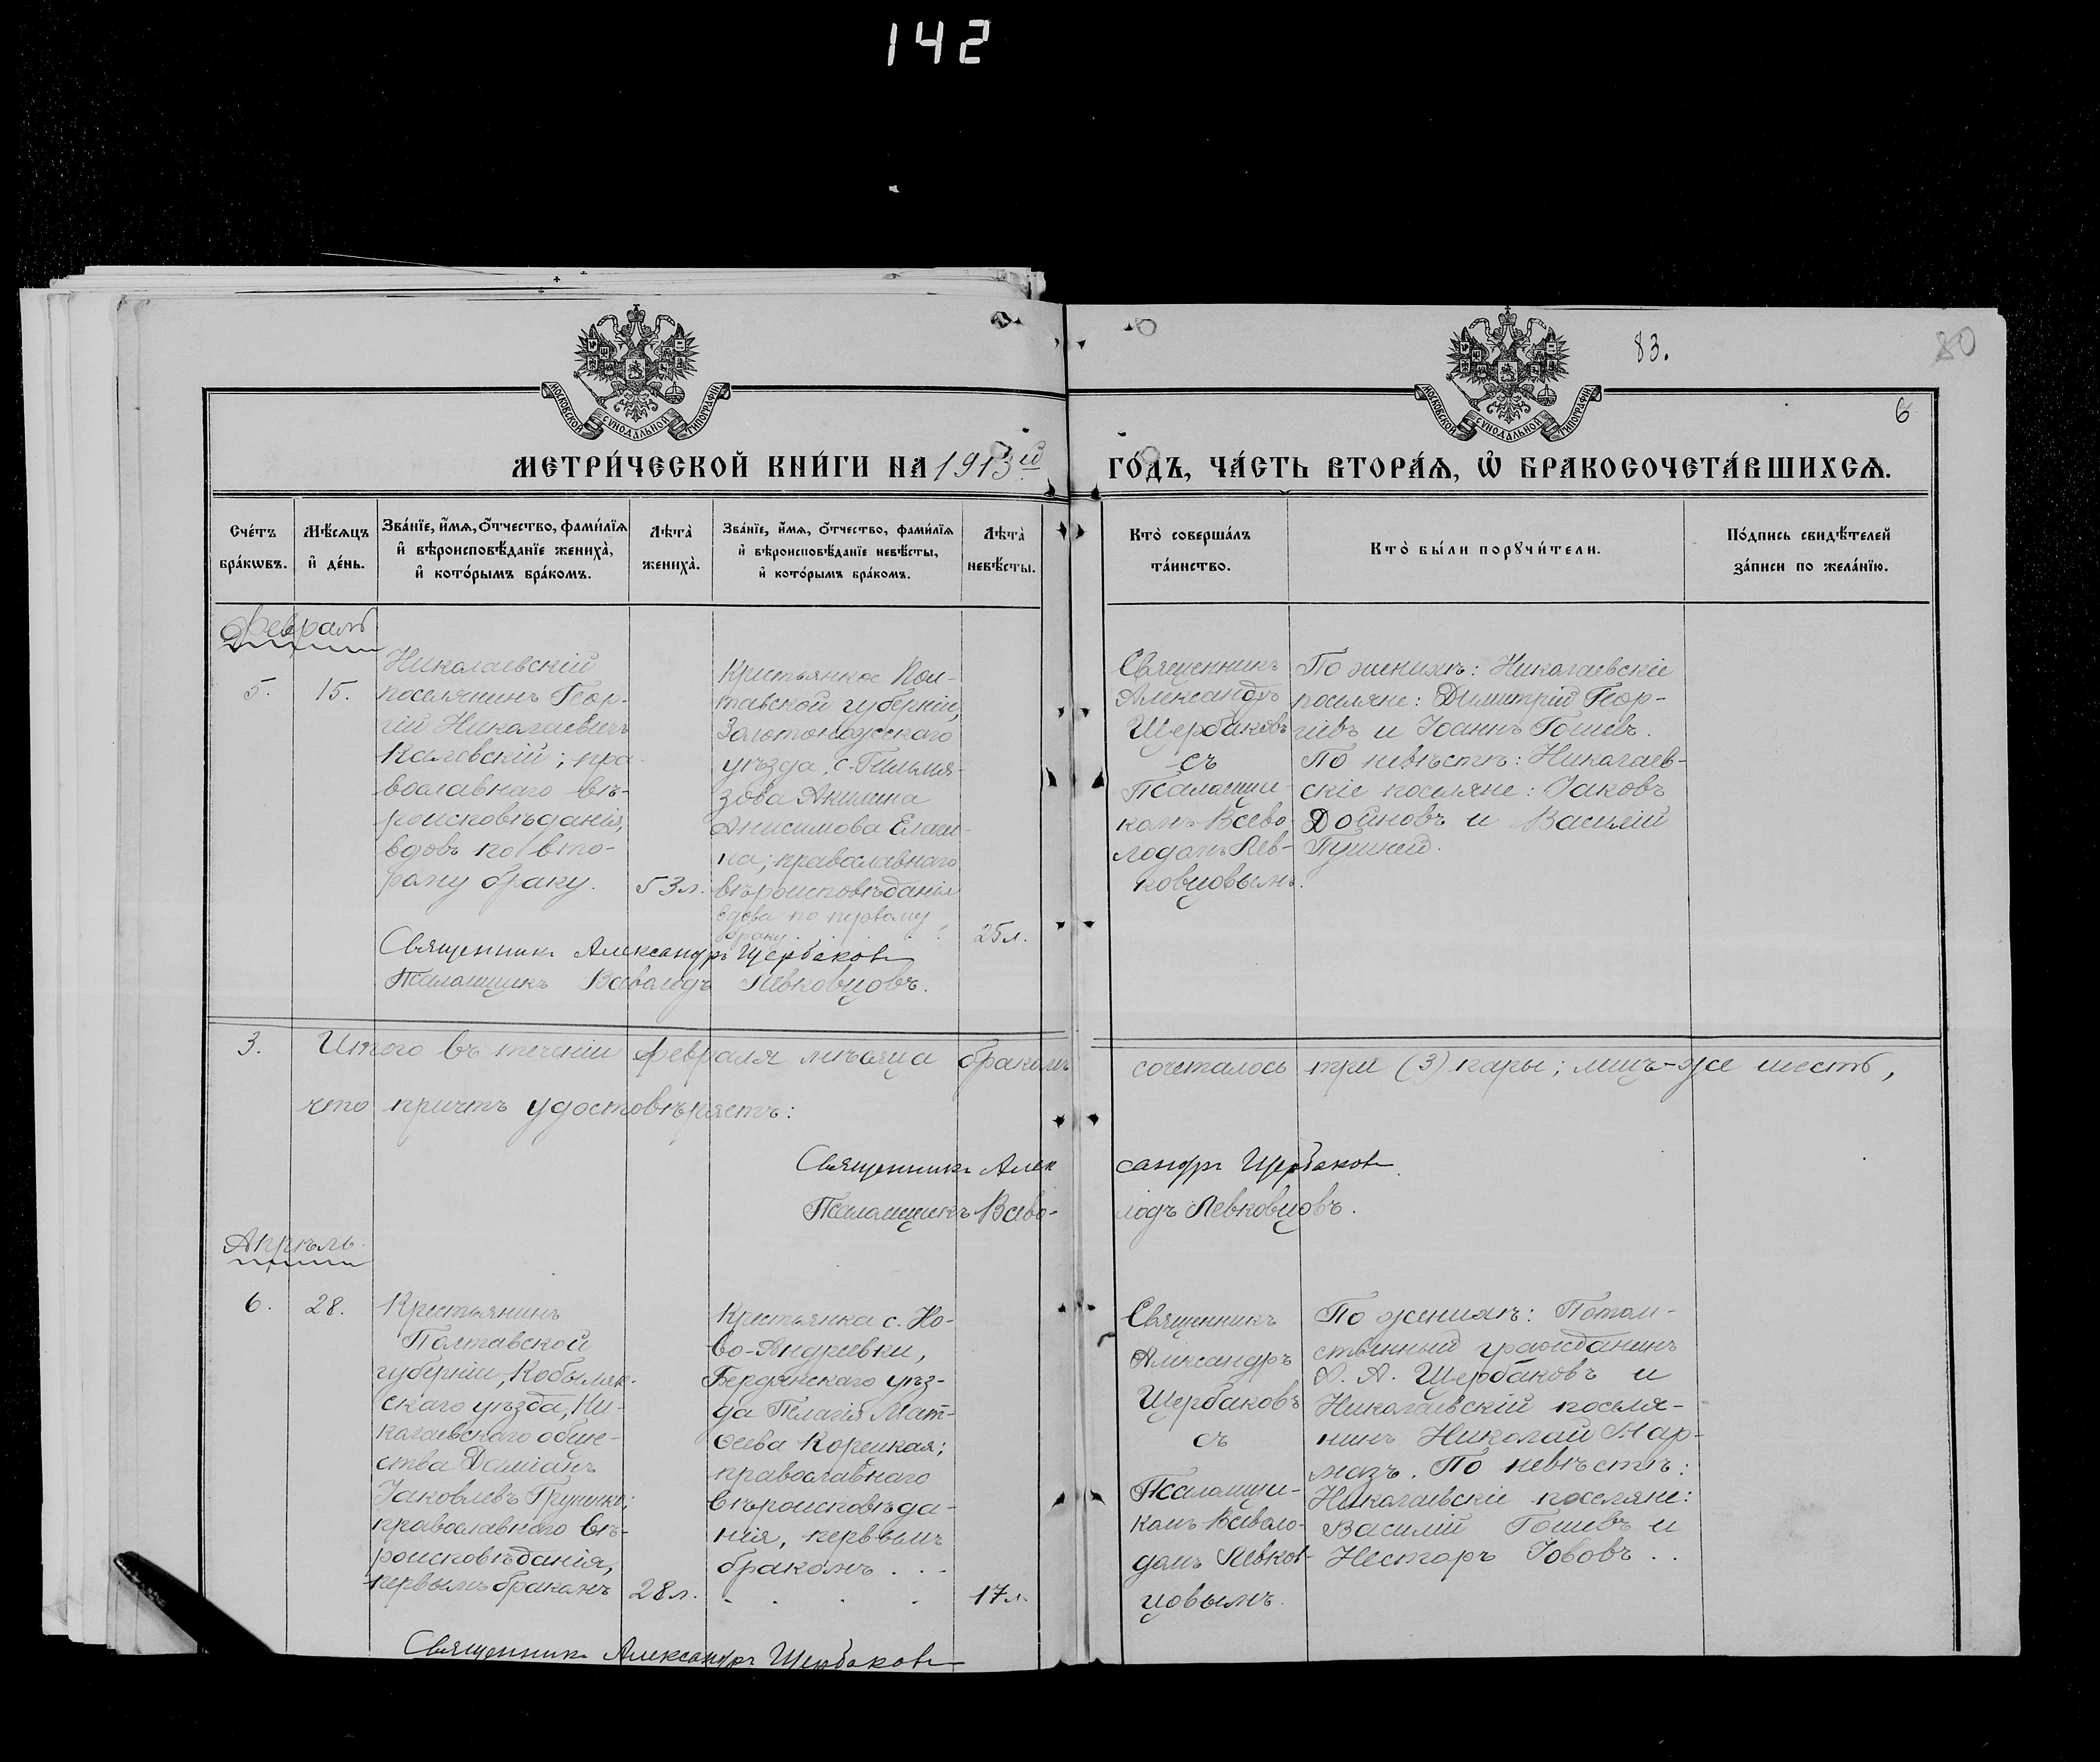 142
83.
80
6
МОСКОВСКОЙ СѴНОДАЛЬНОЙ ТИПОГРАФІИ
МОСКОВСКОЙ СѴНОДАЛЬНОЙ ТИПОГРАФІИ
МЕТРИ́ЧЕСКОЙ КНИ́ГИ НА 1913й
ГО́ДЪ, ЧА́СТЬ ВТОРА́Ѧ, Ѽ БРАКОСОЧЕТА́ВШИХСѦ.
Сче́тъ бра́кѡвъ.
Мѣ́сѧцъ и҆ де́нь.
Зва́нїе, и҆́мѧ, ѻ҆́тчество, фами́лїѧ
и҆ вѣроисповѣ́данїе жениха̀,
и҆ кото́рымъ бра́комъ.
Лѣта̀ жениха̀.
Зва́нїе, и҆́мѧ, ѻ҆́тчество, фами́лїѧ
и҆ вѣроисповѣ́данїе невѣ́сты,
и҆ кото́рымъ бра́комъ.
Лѣта̀ невѣ́сты.
Кто̀ соверша́лъ та́инство.
Кто̀ бы́ли порꙋчи́тели.
По́дпись свидѣ́телей
за́писи по жела́нїю.
Февраль
5.
15.
Николаевскій
поселянинъ Геор-
гій Николаевичъ
Каловскій; пра-
вославнаго вѣ-
роисповѣданія,
вдовъ по вто-
рому браку.
53л.
Крестьянка Пол-
тавской губерніи,
Золотоношскаго
уѣзда, с.
зова Акилина
Анисимова
на; православнаго
вѣроисповѣданія
вдова по первому
браку.
25л.
Священникъ
Александръ
Щербаковъ
съ
Псаломщи-
комъ Всево-
лодомъ Лев-
ковцовымъ.
По женихѣ: Николаевскіе
поселяне: Димитрій Геор-
гіевъ и Іоаннъ Гошевъ.
По невѣстѣ: Николаев-
скіе поселяне: Іаковъ
Дойновъ и Василій
Священникъ Александръ Щербаковъ
Псаломщикъ Всеволодъ Левковцовъ.
3.
Итого въ теченіи февраля мѣсяца бракомъ сочеталось три (3) пары; лицъ-же шесть,
что причтъ удостовѣряетъ:
Священникъ Александръ Щербаковъ
Псаломщикъ Всево-лодъ Левковцовъ.
Апрѣль.
6.
28.
Крестьянинъ
Полтавской
губерніи, Кобыляк-
скаго уѣзда, Ни-
колаевскаго обще-
ства Даміанъ
Іаковлевъ
православнаго вѣ-
роисповѣданія,
первымъ бракомъ
28л.
Крестьянка с. Но-
во-Андреевки,
Бердянскаго уѣз-
да Пелагія Мат-
ѳеева Корецкая;
православнаго
вѣроисповѣда-
нія, первымъ
бракомъ . . .
17л.
Священникъ
Александръ
Щербаковъ
съ
Псаломщи-
комъ Всеволо-
домъ Левков-
цовымъ.
По женихѣ: Потом-
ственный гражданинъ
А. А. Щербаковъ и
Николаевскій поселя-
нинъ Николай Мар-
мазъ. По невѣстѣ:
Николаевскіе поселяне:
Василій Гошевъ и
Несторъ Іововъ . .
Священникъ Александръ Щербаковъ